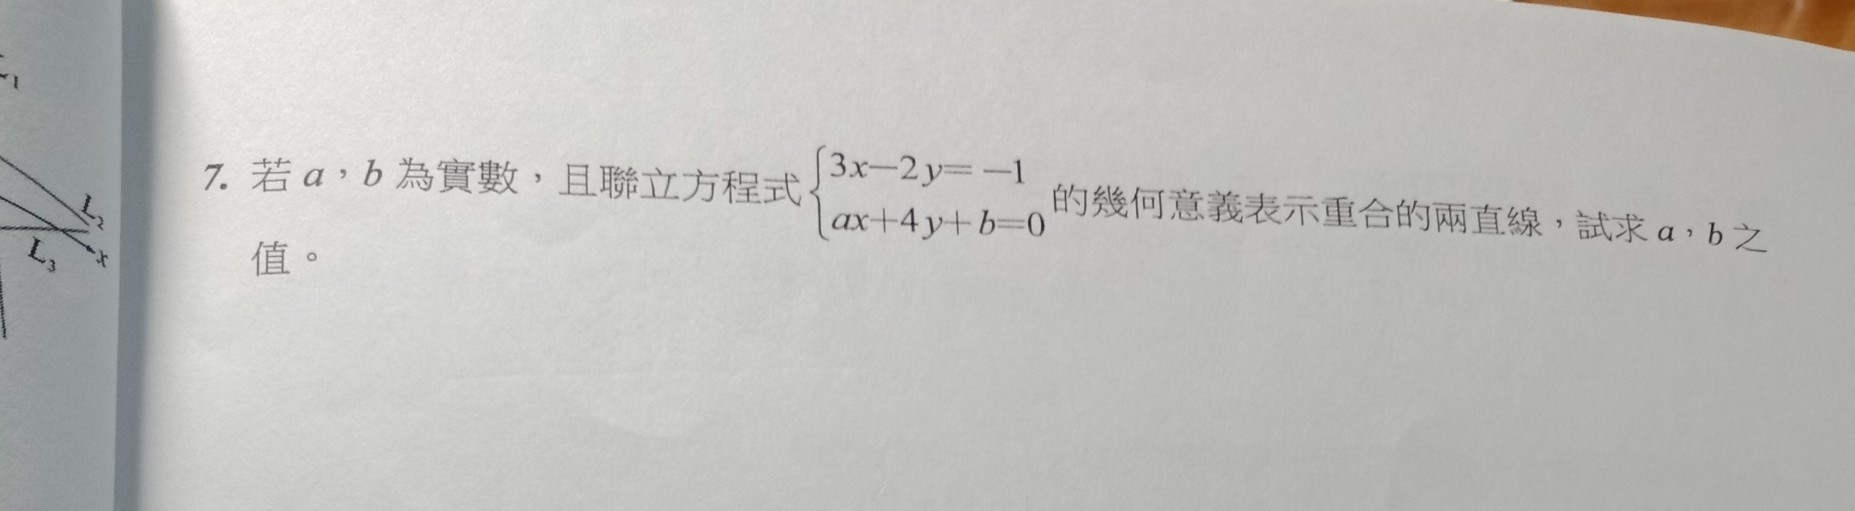 L₁
L₂
L₃
x
7. 若 a，b 為實數，且聯立方程式{3x−2y=−1
ax+4y+b=0 的幾何意義表示重合的兩直線，試求 a，b 之
值。